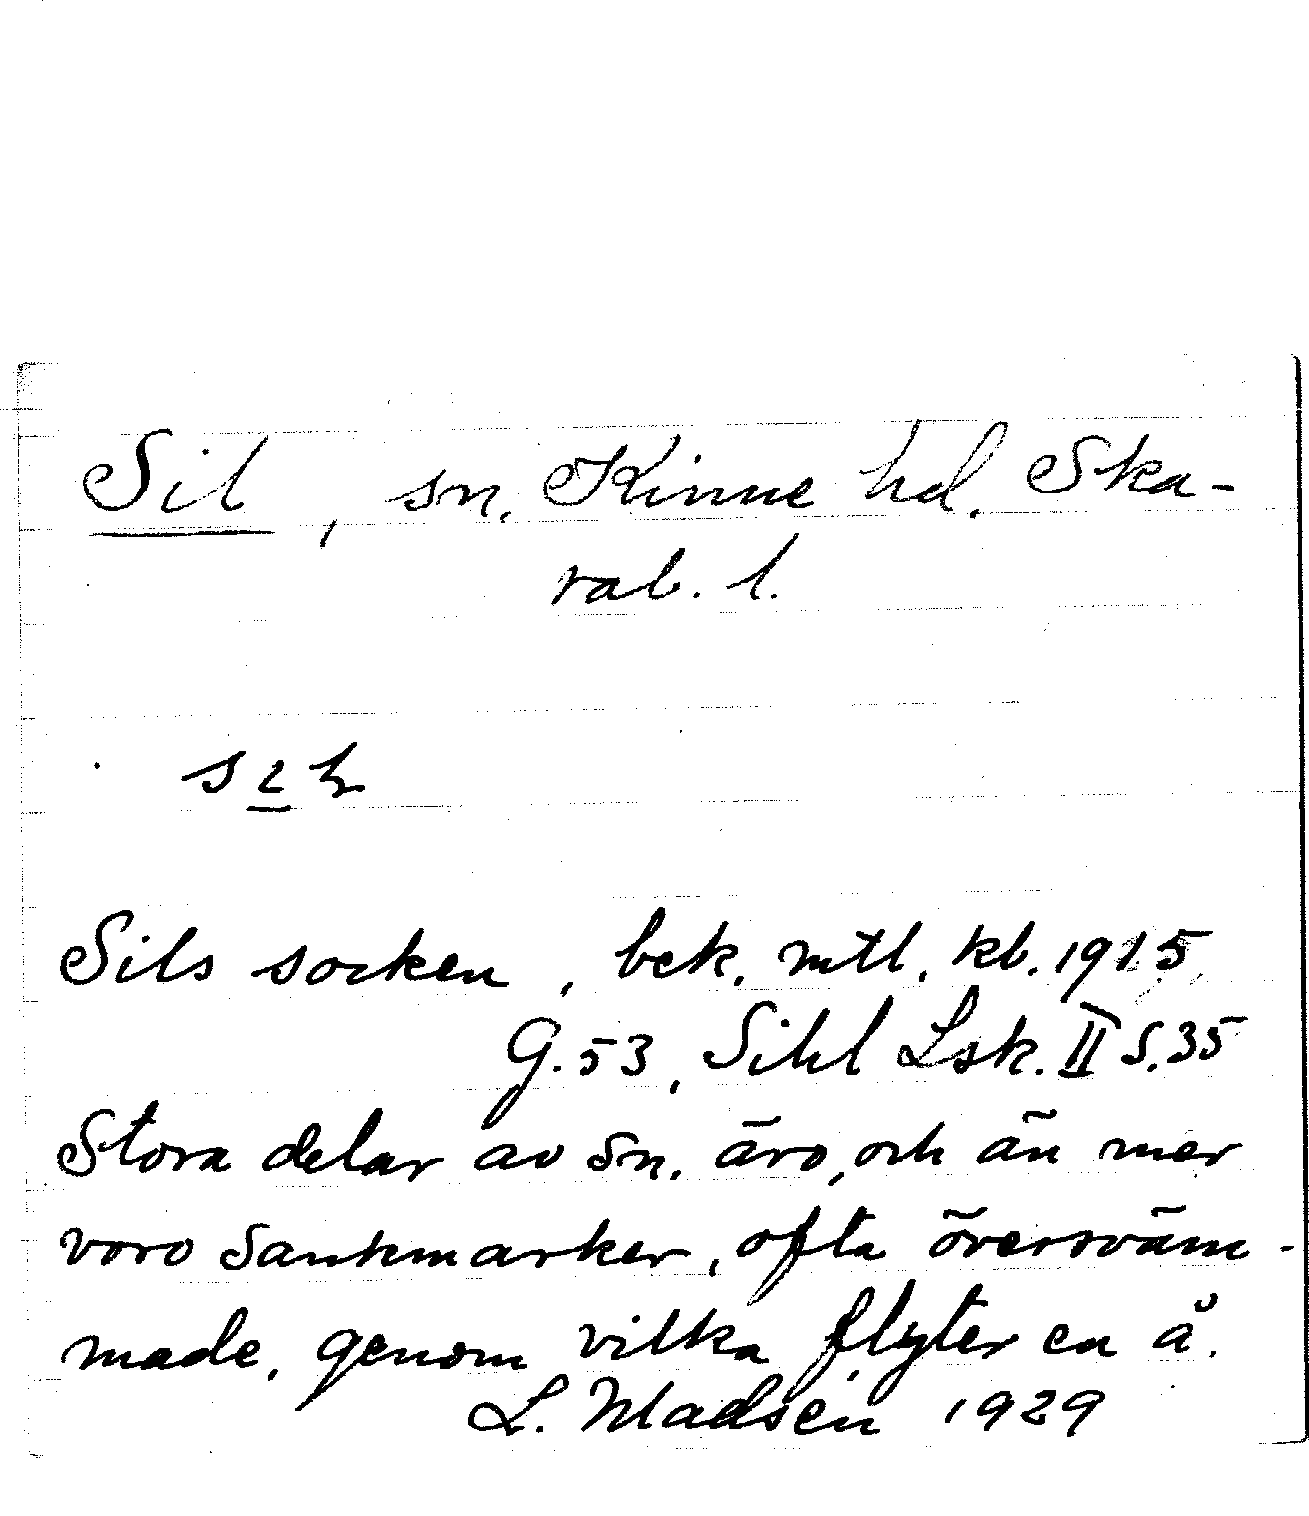 Sil, sn. Kinne hd. Ska-
rab. l.
Sils socken, bek. mtl. kb. 1915
G. 53, Sihl Lsk. II S. 35
Stora delar av sn. äro, och än mer
voro sankmarker, ofta översväm-
made, genom vilka flyter en å.
L. Madsén 1929